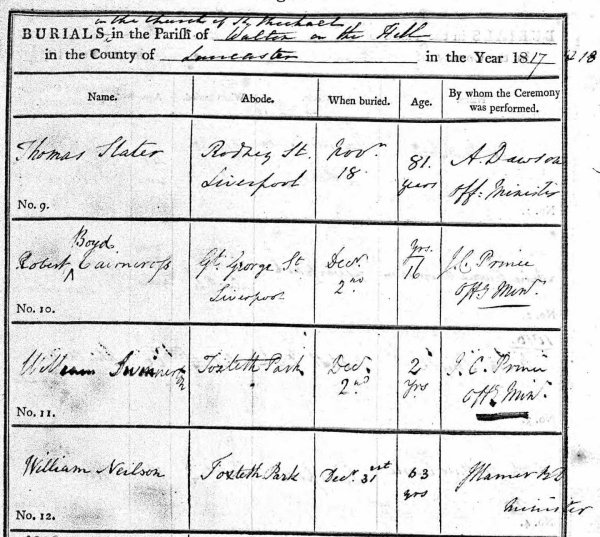 in the Church of St Michael
BURIALS in the Parish of Walton on the Hill
in the County of Lancaster in the Year 1817 & 18
Name. Abode. When buried. Age. By whom the Ceremony was performed.
Thomas Slater Rodney St. Liverpool Novr 18. 81. years A. Dawson Off: Minister
No. 9.
Robert Boyd Cairncross Gt. George St. Liverpool Decr 2nd yrs. 16 J. C. Prince Offg Minr.
No. 10.
William Toxteth Park Decr 2nd 2 yrs J. C. Prince Offg Minr.
No. 11.
William Neilson Toxteth Park Decr 31st 63 yrs Minister
No. 12.